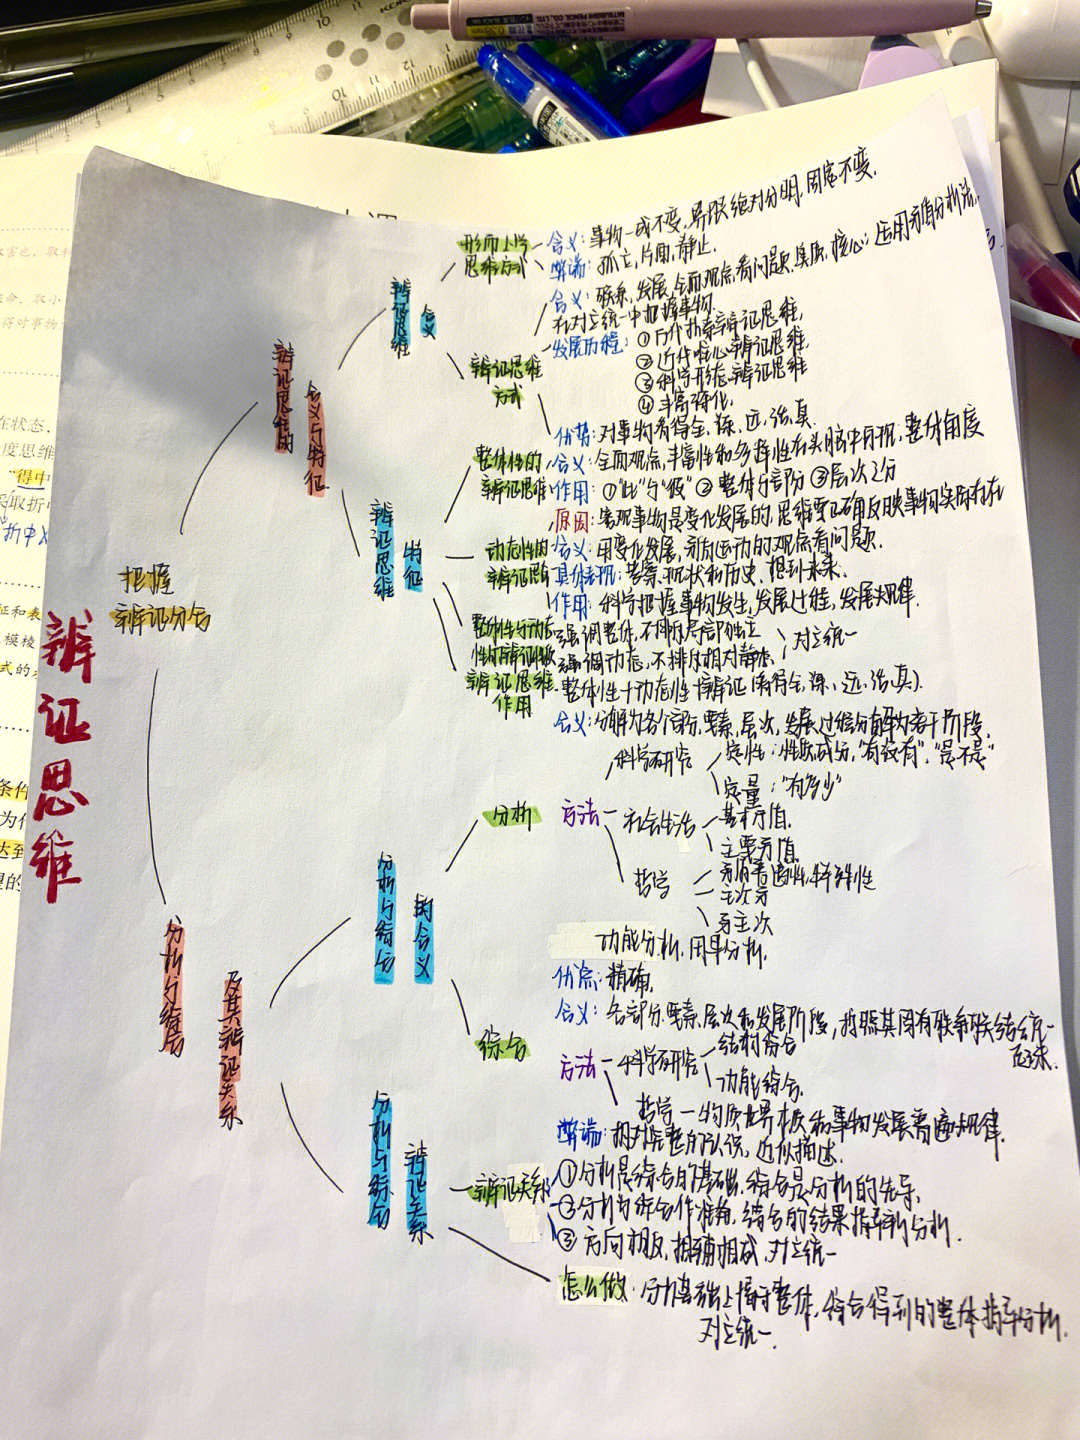 辨证思维
把握
辨证分合
辨证思维的
含义与特征
辨证思维
含义
形而上学
思维方式
含义：事物一成不变，界限绝对分明，固定不变。
弊端：孤立，片面，静止。
辨证思维
方式
含义：联系，发展，全面观点看问题，实质，核心：运用矛盾分析法，
在对立统一中把握事物.
发展历程：①古代朴素辨证思维，
②近代唯心辨证思维，
③科学形态辨证思维
④丰富深化.
优势：对事物看得全、深、远、活、真
辨证思维
特征
整体性的
辨证思维
含义：全面观点，丰富性和多样性在头脑中再现，整体角度
作用：①"此"与"彼"②整体与部分③层次之分
动态性的
辨证思维
原因：客观事物是变化发展的，思维要正确反映事物实际存在
含义：用变化发展，矛盾运动的观点看问题.
具体表现：考察，现状和历史，想到未来.
作用：科学把握事物发生，发展过程，发展规律.
整体性与动态
性的辨证
强调整体，不排斥局部独立
强调动态，不排斥相对静态
对立统一
辨证思维
作用
整体性+动态性 辨证（看得全、深、远、活、真）.
分析与综合
及其辨证关系
分析与综合
的含义
分析
含义：分解为各个部分，要素，层次，发展过程分解为若干阶段.
方法
科学研究
定性：性质成分，"有没有"，"是不是"
定量："有多少"
社会生活
基本方面.
主要方面.
哲学
矛盾普遍性，特殊性
主次矛
矛主次
功能分析，因果分析.
优点：精确.
综合
含义：各部分、要素、层次和发展阶段，按照其固有联系联结统一
起来.
方法
科学研究
结构综合
功能综合.
哲学—物质世界本质和事物发展普遍规律.
弊端：相对完整的认识，近似描述.
分析与综合
辨证关系
辨证关系
①分析是综合的基础，综合是分析的先导，
②分析为综合作准备，综合的结果指导新分析.
③方向相反，相辅相成，对立统一
怎么做：分析基础上着于整体，综合得到的整体指导分析.
对立统一.